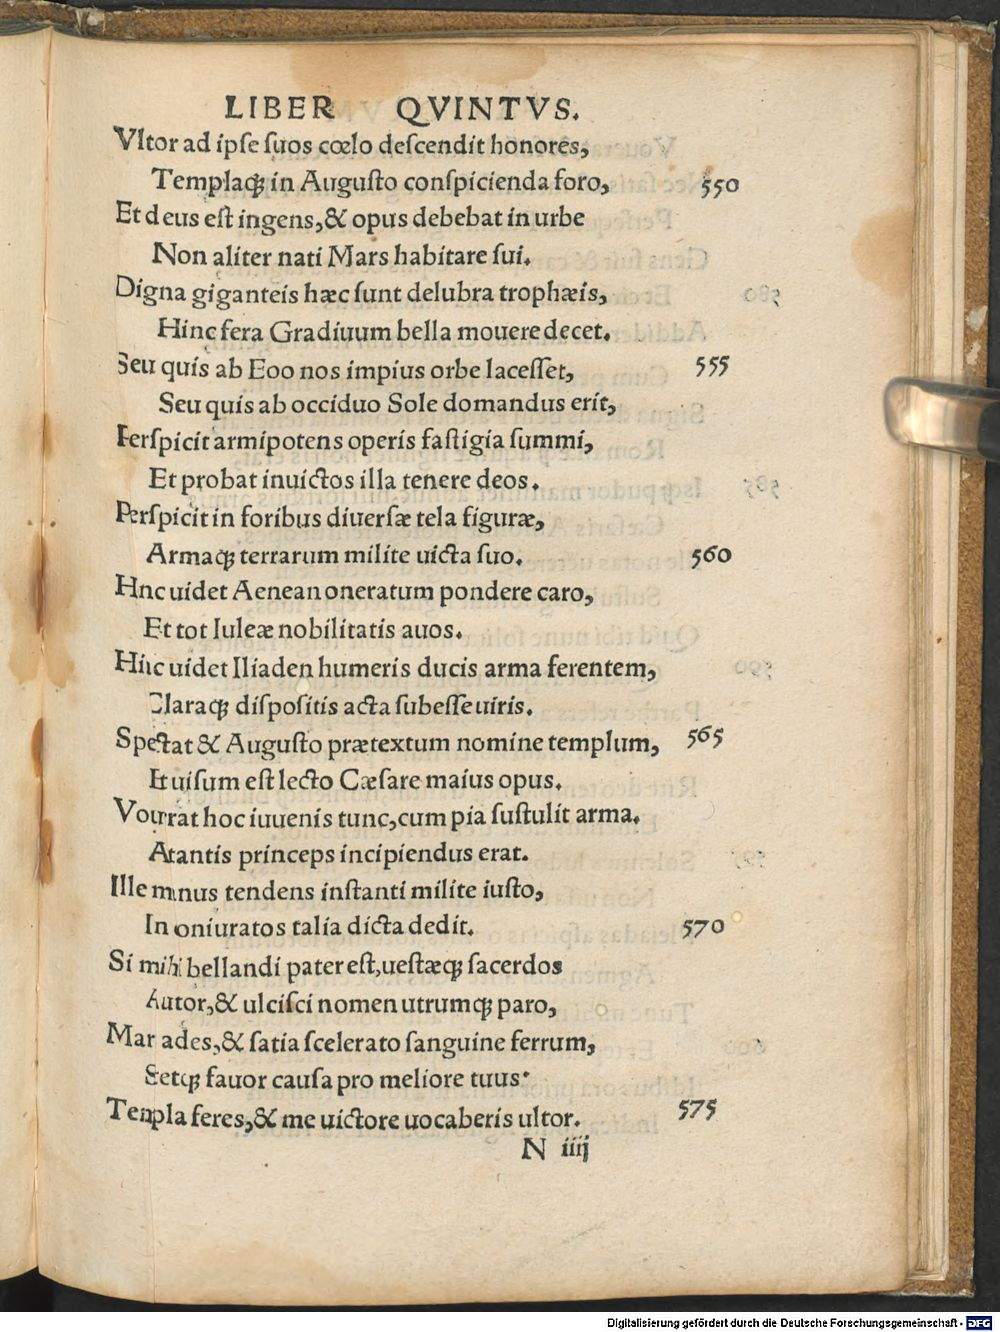 LIBER QVINTVS.
Vltor ad ipſe ſuos cœlo deſcendit honores,
Templaqꝫ in Auguſto conſpicienda foro, 550
Et deus eſt ingens, & opus debebat in urbe
Non aliter nati Mars habitare ſui.
Digna giganteis hæc ſunt delubra trophæis,
Hinc fera Gradiuum bella mouere decet.
Seu quis ab Eoo nos impius orbe laceſſet, 555
Seu quis ab occiduo Sole domandus erit,
Perſpicit armipotens operis faſtigia ſummi,
Et probat inuictos illa tenere deos.
Perſpicit in foribus diuerſæ tela figuræ,
Armaqꝫ terrarum milite uicta ſuo. 560
Hnc uidet Aenean oneratum pondere caro,
Et tot Iuleæ nobilitatis auos.
Hinc uidet Iliaden humeris ducis arma ferentem,
Claraqꝫ diſpoſitis acta ſubeſſe uiris.
Spectat & Auguſto prætextum nomine templum, 565
Et uiſum eſt lecto Cæſare maius opus.
Vouerat hoc iuuenis tunc, cum pia ſuſtulit arma.
Atantis princeps incipiendus erat.
Ille manus tendens inſtanti milite iuſto,
In oniuratos talia dicta dedit. 570
Si mihi bellandi pater eſt, ueſtæqꝫ ſacerdos
Autor, & ulciſci nomen utrumqꝫ paro,
Mar ades, & ſatia ſcelerato ſanguine ferrum,
Setqꝫ fauor cauſa pro meliore tuus.
Templa feres, & me uictore uocaberis ultor. 575
N iiij
Digitalisierung gefördert durch die Deutsche Forschungsgemeinschaft - DFG